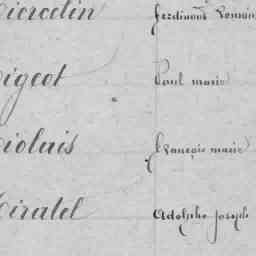 Piercelin Ferdinand Romain
Pigeot Paul marie
Piolais François marie
Piratel Adolphe Joseph